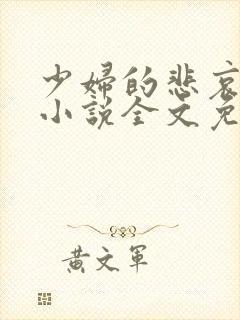 少婦的悲哀
小說全文免
黃文軍